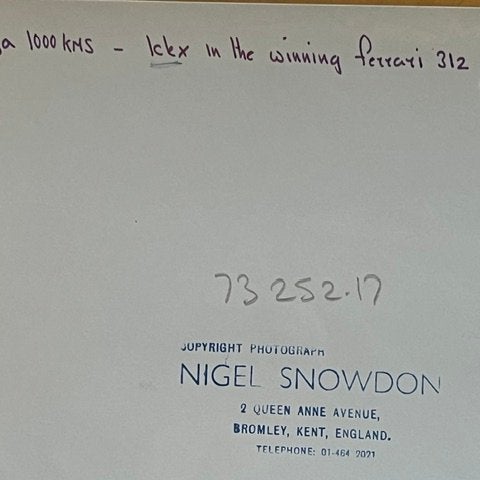 a 1000 KMS - Ickx in the winning ferrari 312
73 252.17
COPYRIGHT PHOTOGRAPH
NIGEL SNOWDON
2 QUEEN ANNE AVENUE,
BROMLEY, KENT, ENGLAND.
TELEPHONE: 01-464 2021